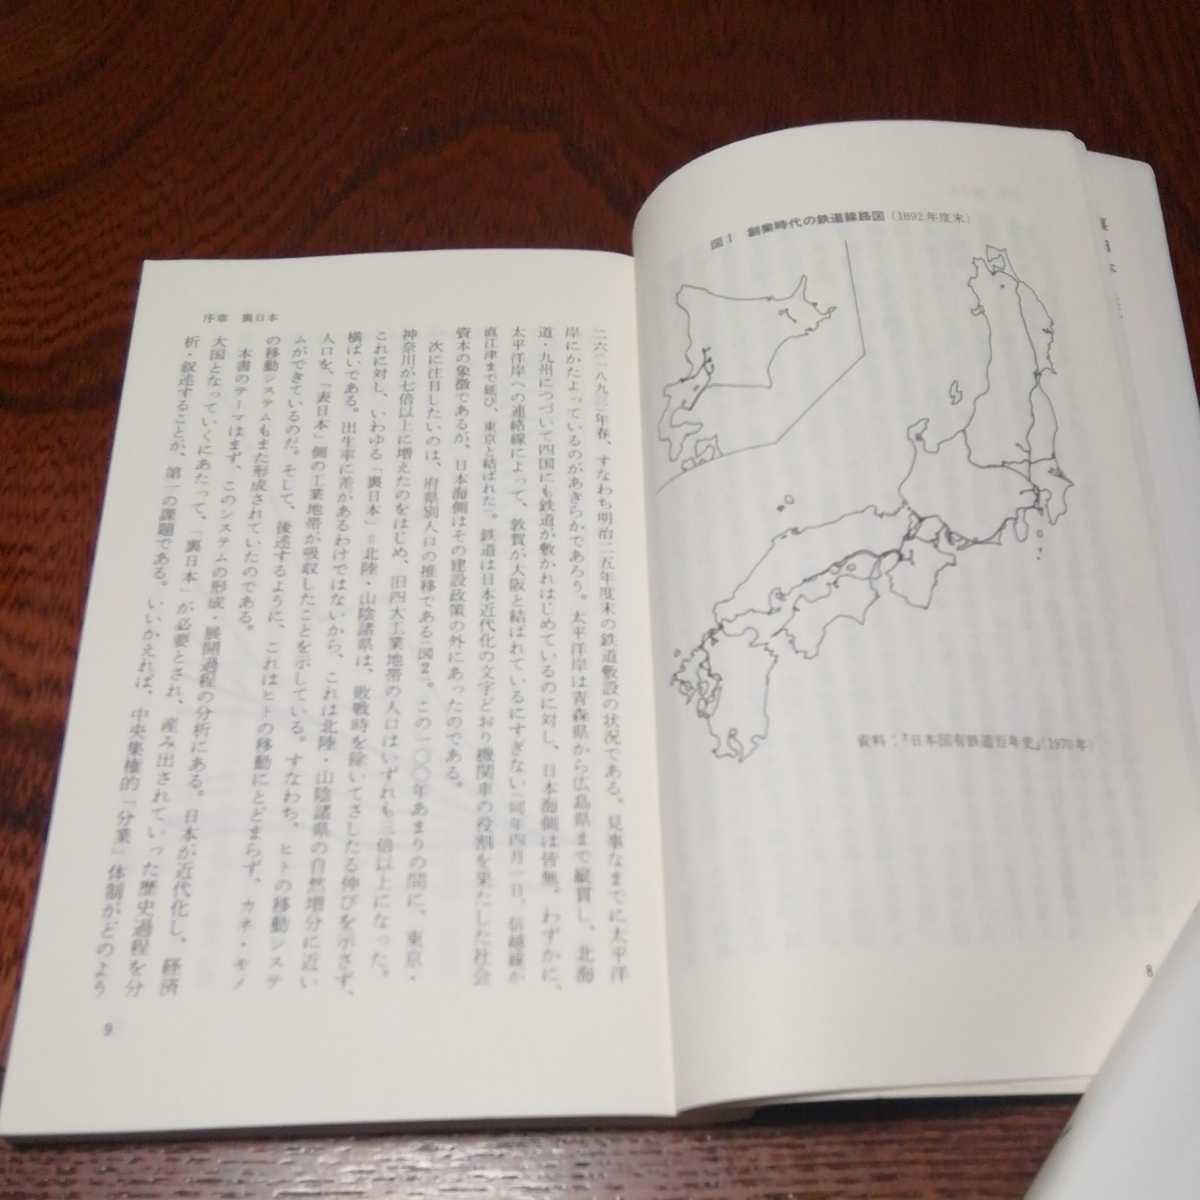 図1 創業時代の鉄道線路図(1892年度末)
資料:『日本国有鉄道百年史』(1970年)
8
序章 裏日本
二六(一八九三)年春、すなわち明治二五年度末の鉄道敷設の状況である。見事なまでに太平洋
岸にかたよっているのがあきらかであろう。太平洋岸は青森県から広島県まで縦貫し、北海
道・九州につづいて四国にも鉄道が敷かれはじめているのに対し、日本海側は皆無。わずかに、
太平洋岸への連結線によって、敦賀が大阪と結ばれているにすぎない(同年四月一日、信越線が
直江津まで延び、東京と結ばれた)。鉄道は日本近代化の文字どおり機関車の役割を果たした社会
資本の象徴であるが、日本海側はその建設政策の外にあったのである。
次に注目したいのは、府県別人口の推移である(図2)。この一〇〇年あまりの間に、東京・
神奈川が七倍以上に増えたのをはじめ、旧四大工業地帯の人口はいずれも三倍以上になった。
これに対し、いわゆる「裏日本」=北陸・山陰諸県は、敗戦時を除いてさしたる伸びを示さず、
横ばいである。出生率に差があるわけではないから、これは北陸・山陰諸県の自然増分に近い
人口を、「表日本」側の工業地帯が吸収したことを示している。すなわち、ヒトの移動システ
ムができているのだ。そして、後述するように、これはヒトの移動にとどまらず、カネ・モノ
の移動システムもまた形成されていたのである。
本書のテーマはまず、このシステムの形成・展開過程の分析にある。日本が近代化し、経済
大国となっていくにあたって、「裏日本」が必要とされ、産み出されていった歴史過程を分
析・叙述することが、第一の課題である。いいかえれば、中央集権的「分業」体制がどのよう
9